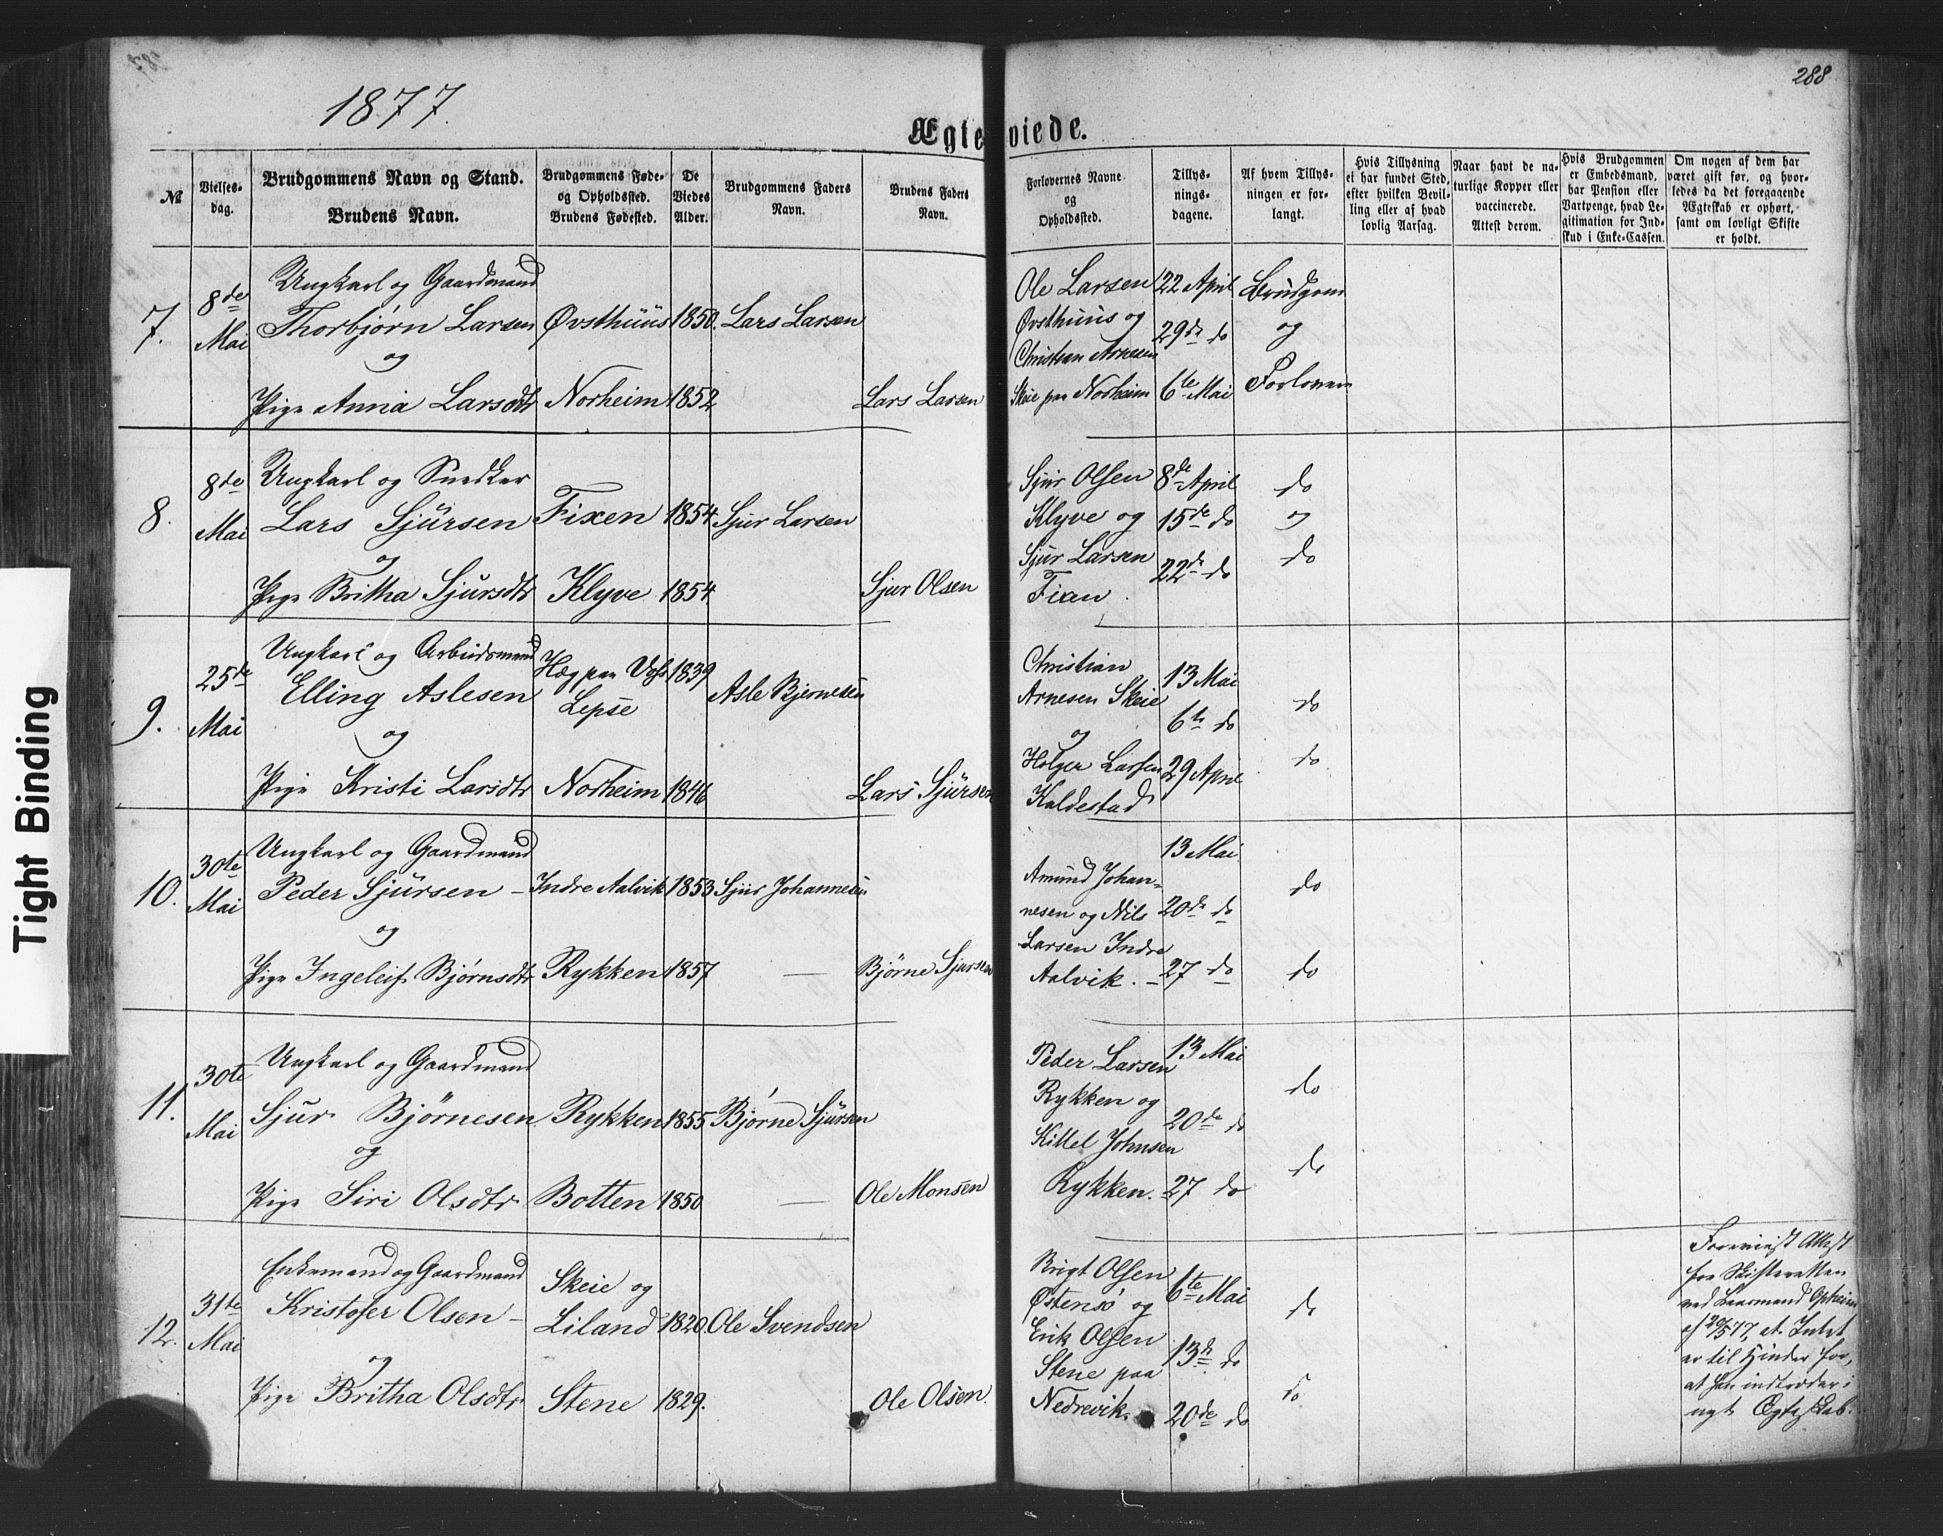 288
1877.
Ægteviede.
№
Vielses-
dag.
Brudgommens Navn og Stand.
Brudens Navn.
Brudgommens Føde-
og Opholdssted.
Brudens Fødested.
De
Viedes
Alder.
Brudgommens Faders
Navn.
Brudens Faders
Navn.
Forlovernes Navne
og
Opholdssted.
Tillys-
nings-
dagene.
Af hvem Tillys-
ningen er for-
langt.
Hvis Tillysning
ei har fundet Sted,
efter hvilken Bevil-
ling eller af hvad
lovlig Aarsag.
Naar havt de na-
turlige Kopper eller
vaccinerede.
Attest derom.
Hvis Brudgommen
er Embedsmand,
har Pension eller
Vartpenge, hvad Le-
gitimation for Ind-
skud i Enke-Cassen.
Om nogen af dem har
været gift før, og hvor-
ledes da det foregaaende
Ægteskab er ophørt,
samt om lovligt Skifte
er holdt.
7.
8de
Mai
Ungkarl og Gaardmand
Thorbjørn Larsen
og
Pige Anna Larsdtr
Øvsthuus
Norheim
1850.
1852
Lars Larsen
Lars Larsen
Ole Larsen
Øvsthuus og
Christian Arnesen
Skeie paa Norheim
22 April
29de do
6te Mai
Brudgom
og
Forlovere
8.
8de
Mai
Ungkarl og Snedker
Lars Sjursen
og
Pige Britha Sjursdtr
Fixen
Klyve
1854
1854
Sjur Larsen
Sjur Olsen
Sjur Olsen
Klyve og
Sjur Larsen
Fixen
8de April
15de do
22de do
do
og
do
9.
25de
Mai
Ungkarl og Arbeidsmand
Elling Aslesen
og
Pige Kristi Larsdtr
Hæg paa Vos
Lepse
Norheim
1839
1846
Asle Bjørnesen
Lars Sjursen
Christian
Arnesen Skeie
og
Holger Larsen
Kaldestad
13 Mai
6te do
29 April
do
do
10.
30te
Mai
Ungkarl og Gaardmand
Peder Sjursen –
og
Pige Ingeleif Bjørnsdtr
Indre Aalvik
Rykken
1853
1857
Sjur Johannesen
—
Bjørne Sjursen
Amund Johan-
nesen og Nils
Larsen Indre
Aalvik. –
13 Mai
20de do
27 do
do
do
11.
30te
Mai
Ungkarl og Gaardmand
Sjur Bjørnesen
og
Pige Siri Olsdtr
Rykken
Botten
1855
1850
Bjørne Sjursen
—
Ole Monsen
Peder Larsen
Rykken og
Kittel Johnsen
Rykken.
13 Mai
20de do
27 do
do
do
12.
31te
Mai
Enkemand og Gaardmand
Kristofer Olsen –
og
Pige Britha Olsdtr
Skeie og
Liland
Stene
1820.
1829.
Ole Svendsen
Ole Olsen.
Brigt Olsen
Østensø og
Erik Olsen
Stene paa
Nedrevik.
6te Mai
13de do
20de do
do
do
Foreviist Attest
fra Skifteretten
ved Lensmand Opheim
af 20/5 77, at Intet
er til Hinder for,
at han indtræder i
nyt Ægteskab.
Tight Binding